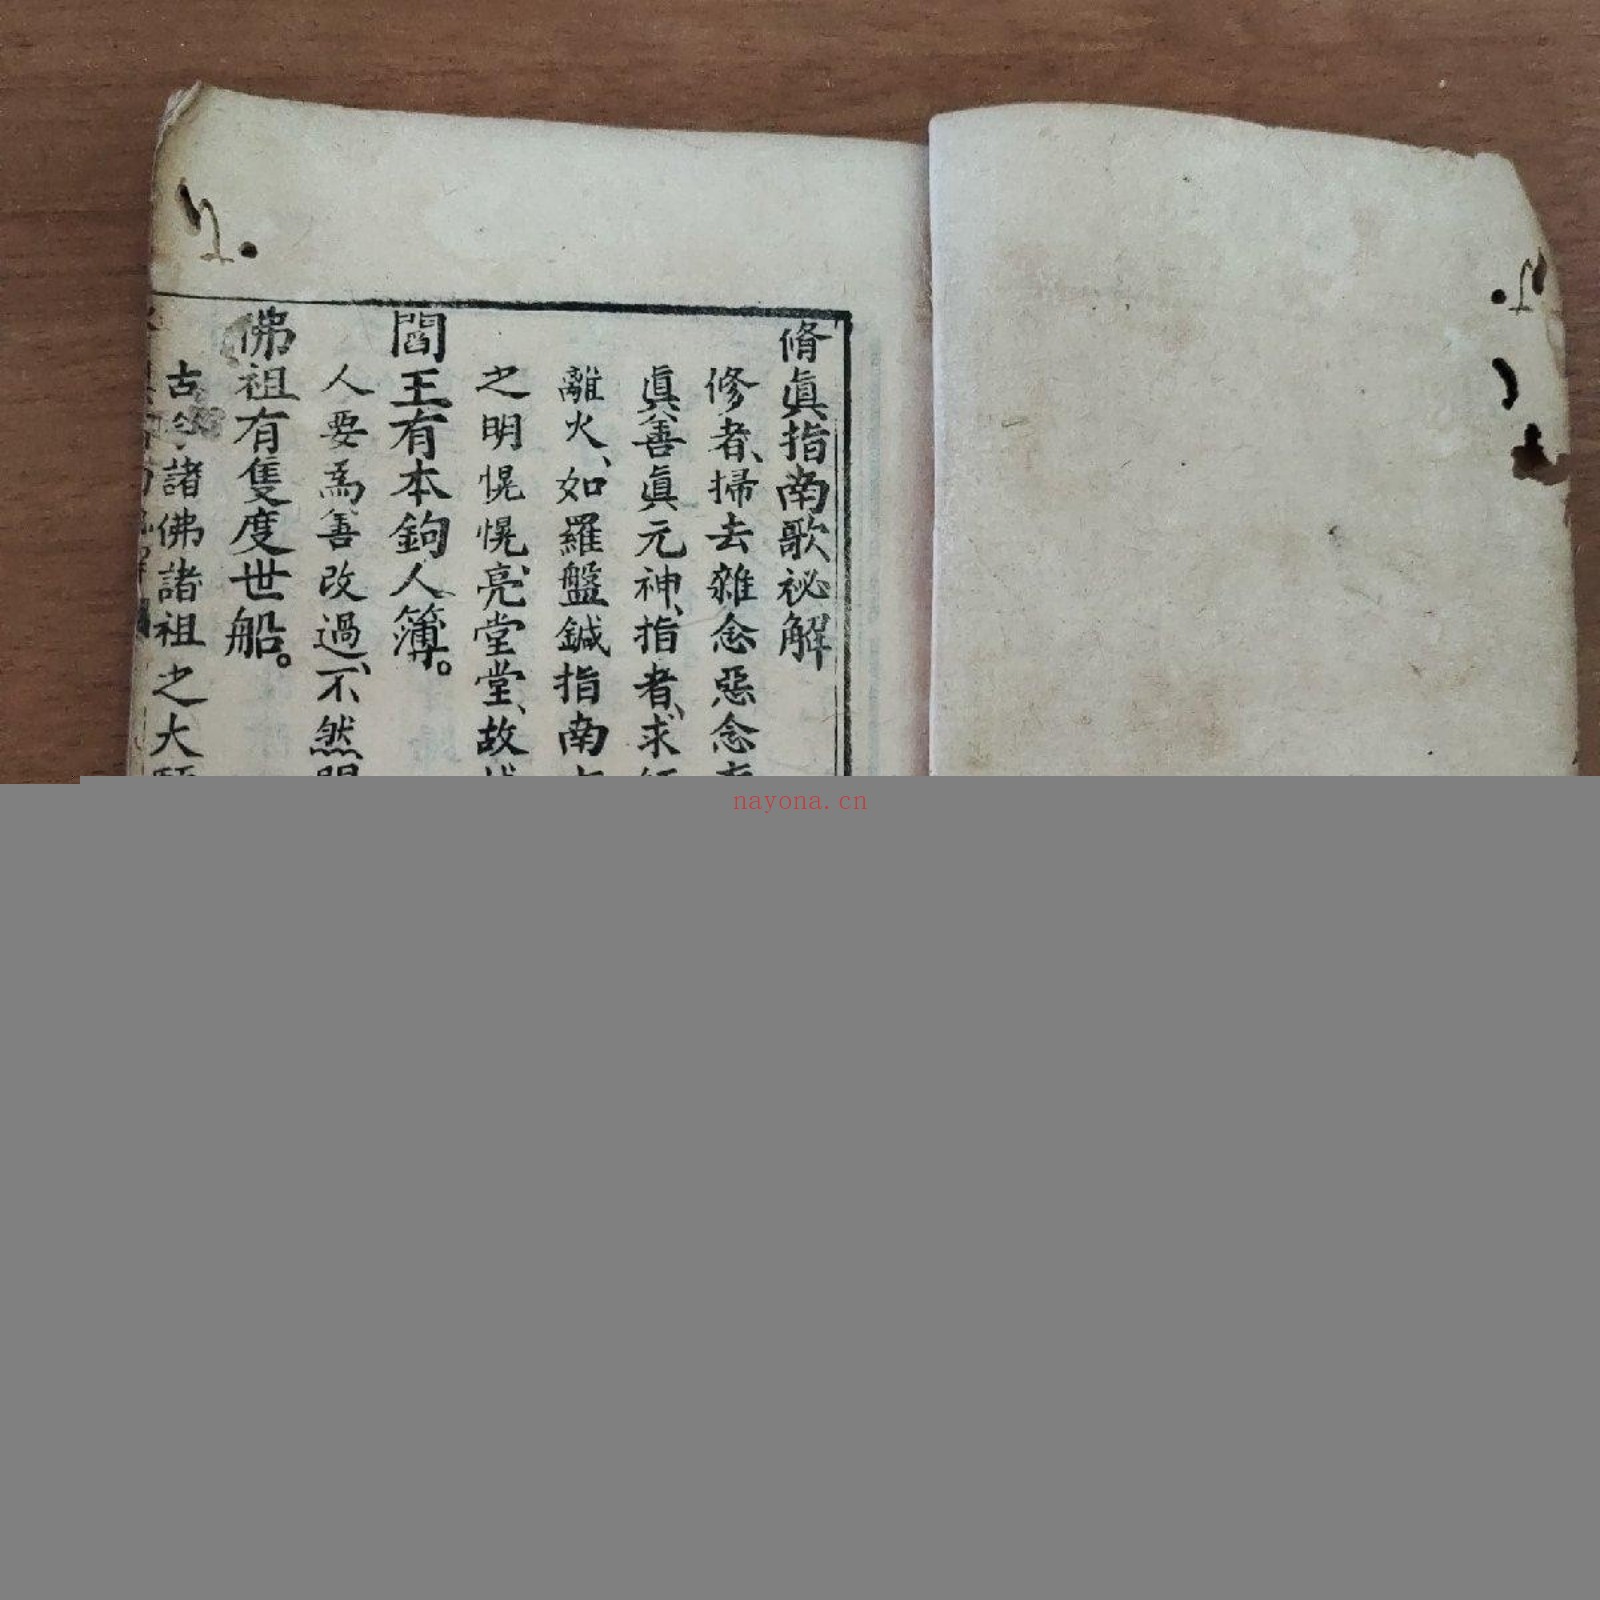 脩眞指南歌祕解
修者、掃去雜念惡念
眞善眞元神、指者、求
離火、如羅盤鍼指南
之明愰愰、亮堂堂、故
閻王有本鉤人簿。
人要爲善改過、不然
佛祖有隻度世船。
古今諸佛諸祖之大
nayona.cn